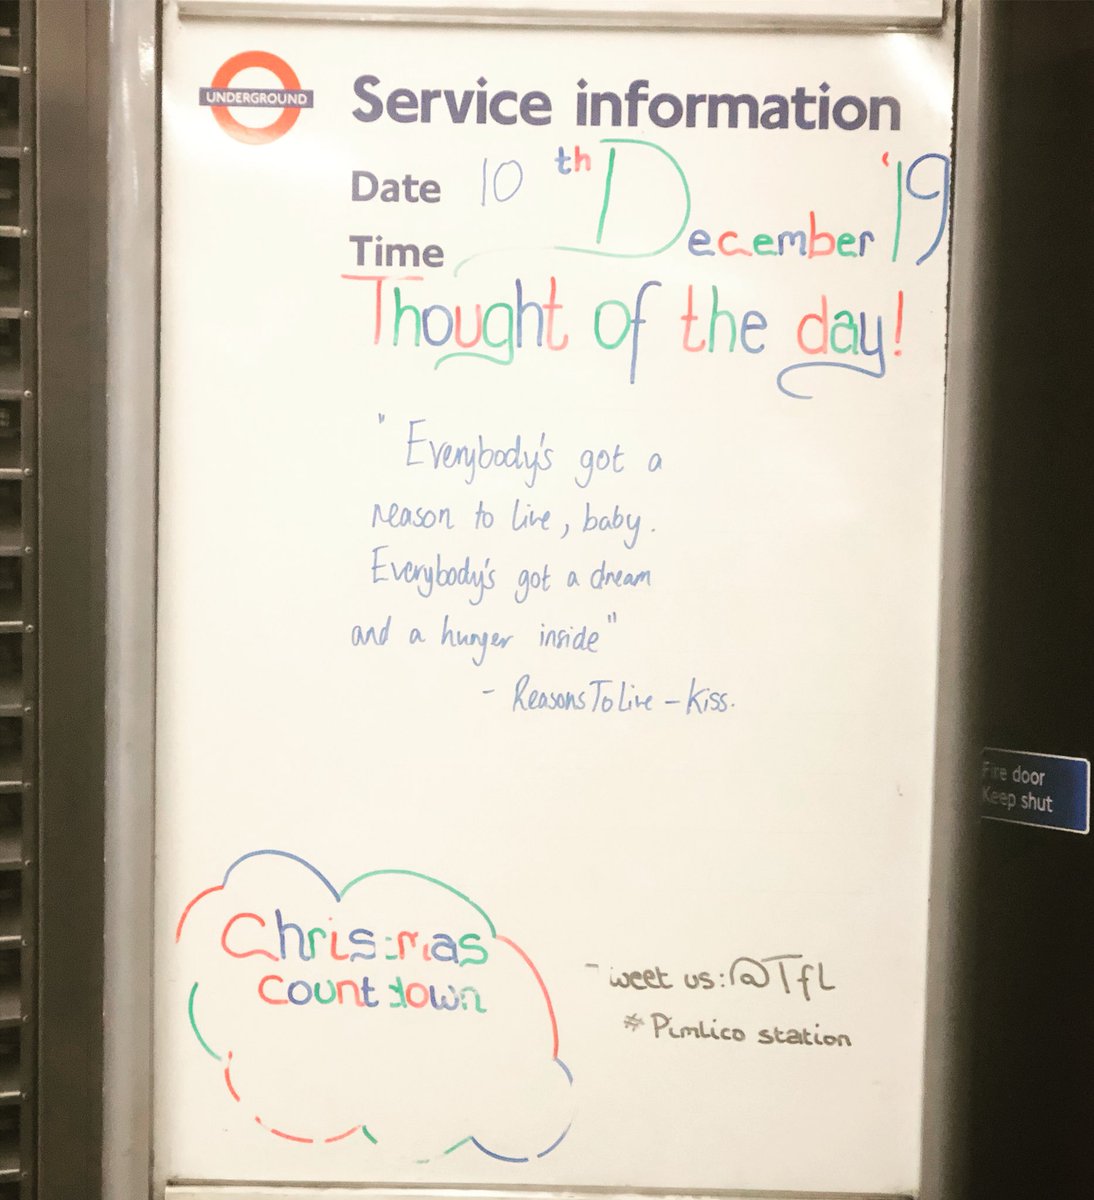 UNDERGROUND
Service information
Date 10th December '19
Time
Thought of the day!
"Everybody's got a
reason to live, baby.
Everybody's got a dream
and a hunger inside"
- Reasons To Live - Kiss.
Fire door
Keep shut
Christmas
Countdown
Tweet us: @TfL
# Pimlico station